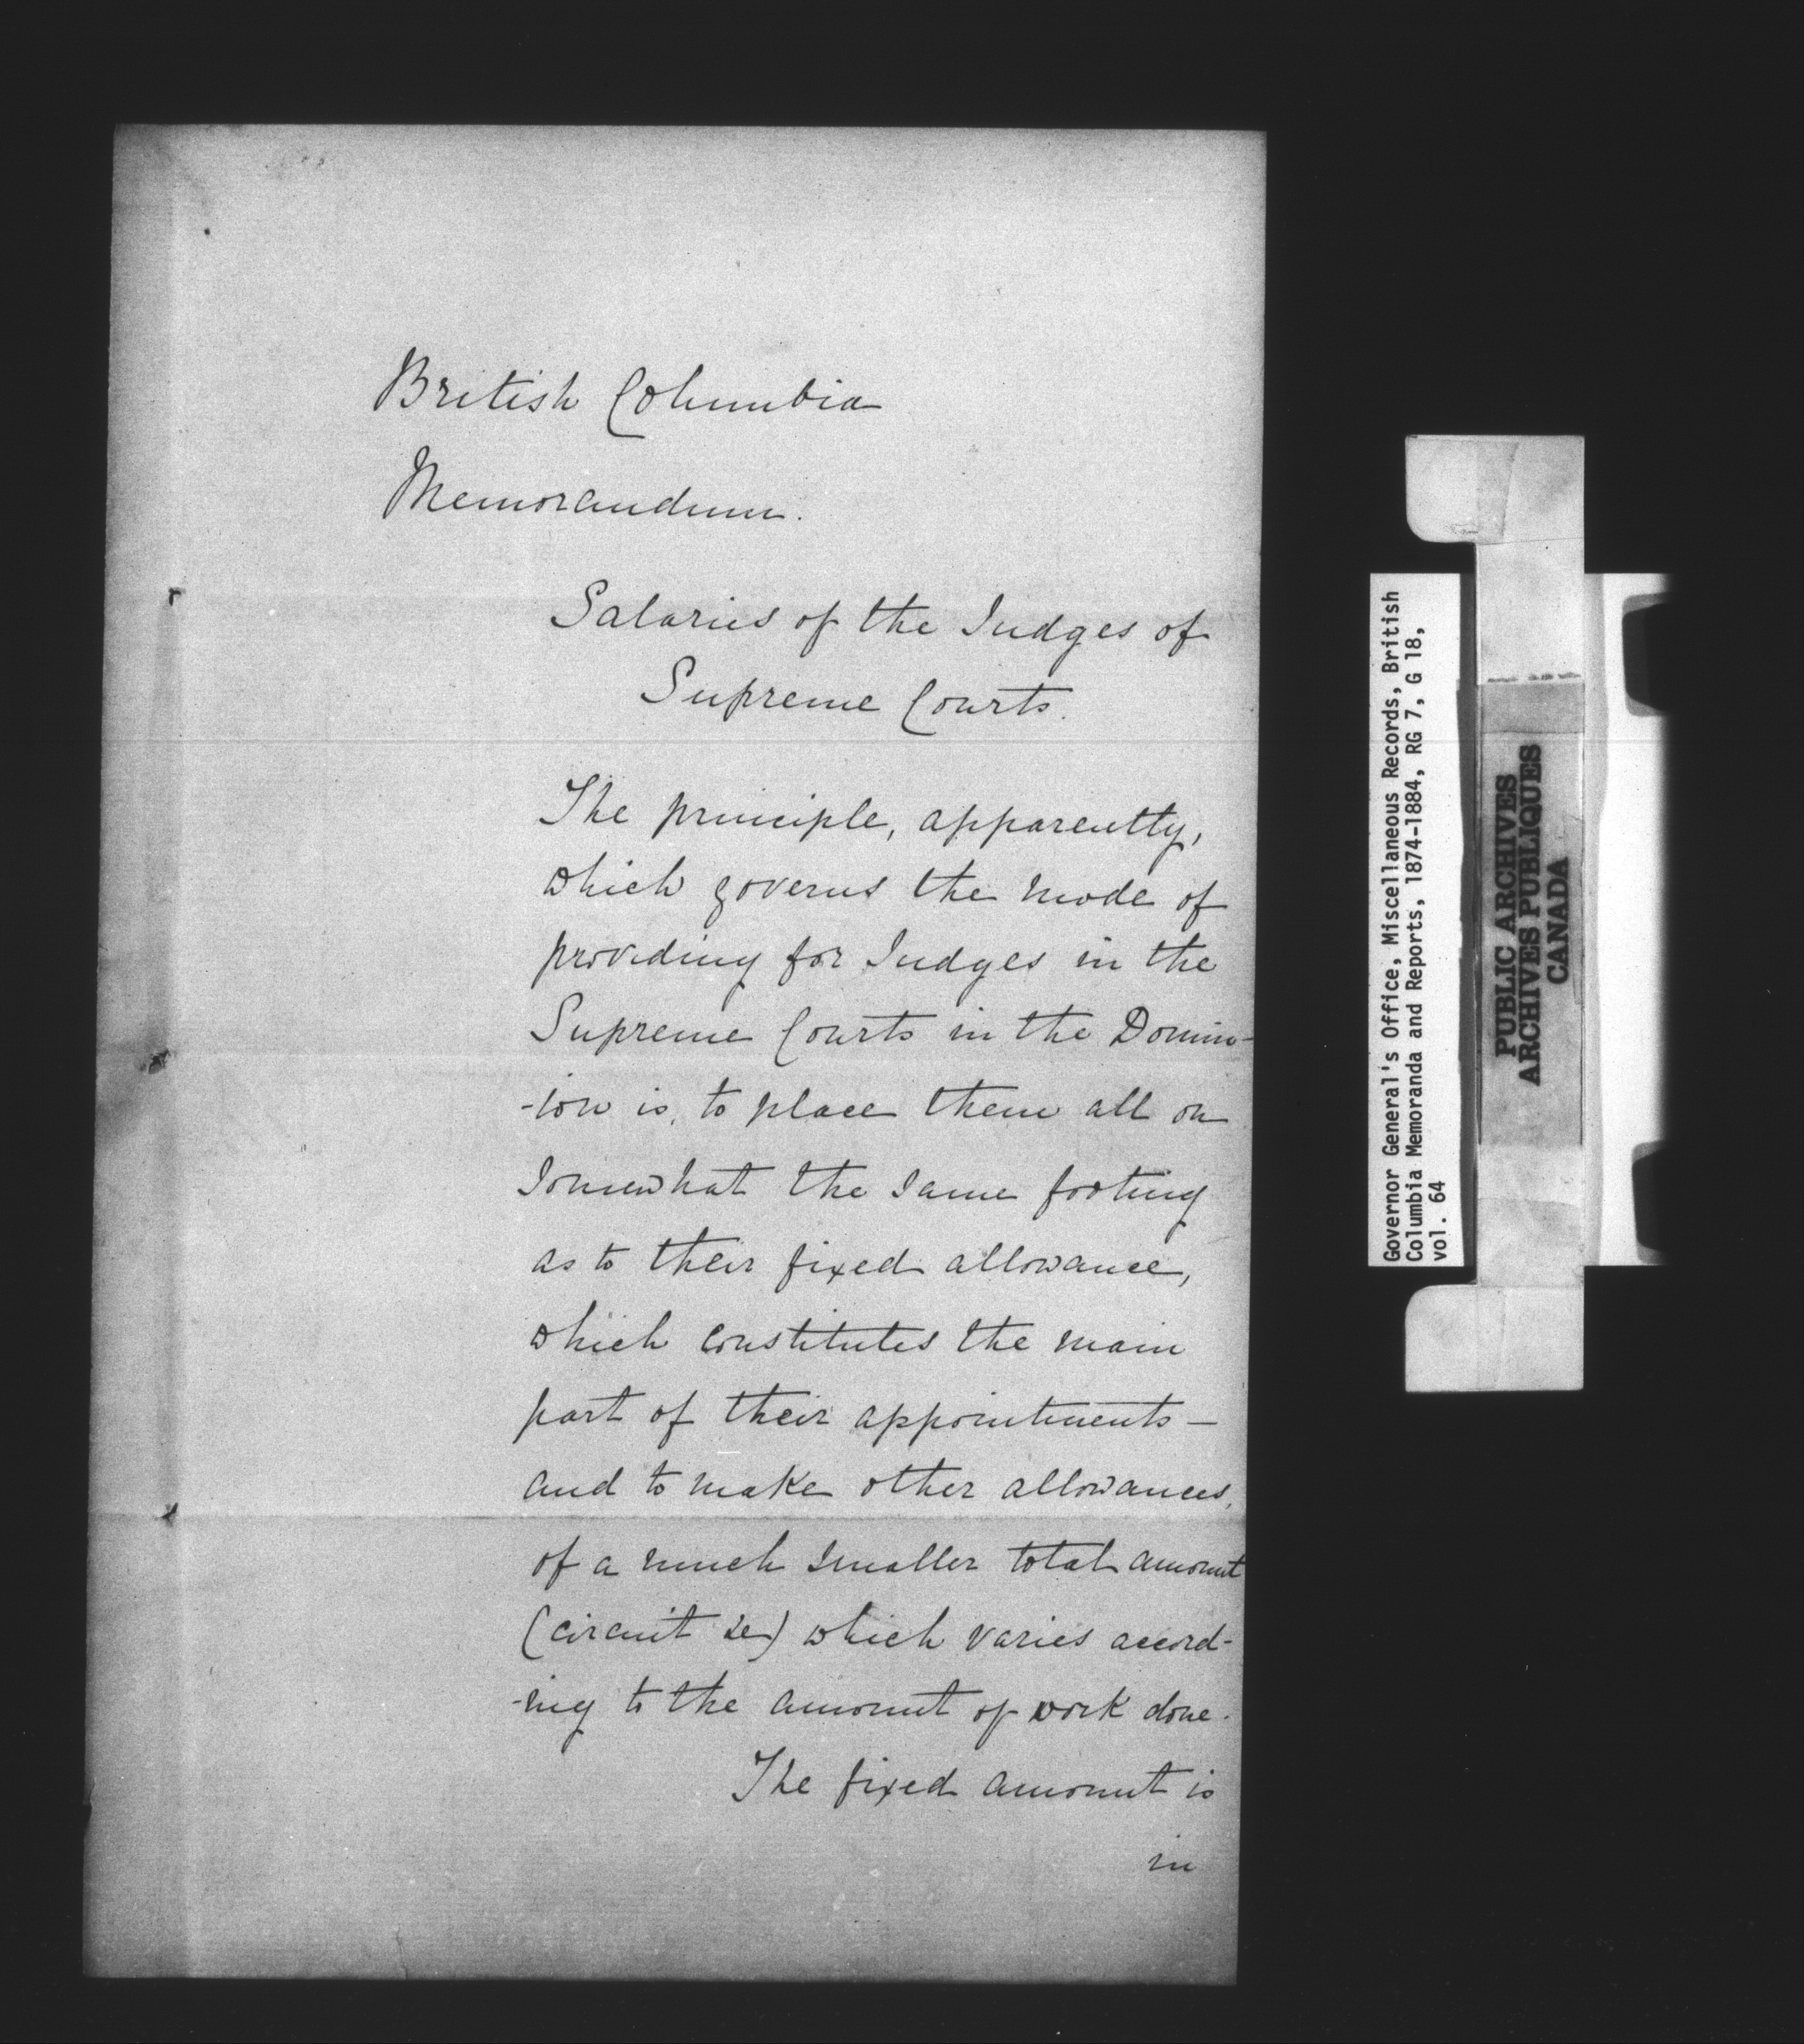 British Columbia
Memorandum.
Salaries of the Judges of
Supreme Courts.
The principle, apparently,
which governs the mode of
providing for Judges in the
Supreme Courts in the Domin-
-ion is, to place them all on
somewhat the same footing
as to their fixed allowance,
which constitutes the main
part of their appointments —
and to make other allowances,
of a much smaller total amount
(circuit &c) which varies accord-
-ing to the amount of work done.
The fixed amount is
in
Governor General's Office, Miscellaneous Records, British
Columbia Memoranda and Reports, 1874-1884, RG 7, G 18,
vol. 64
PUBLIC ARCHIVES
ARCHIVES PUBLIQUES
CANADA